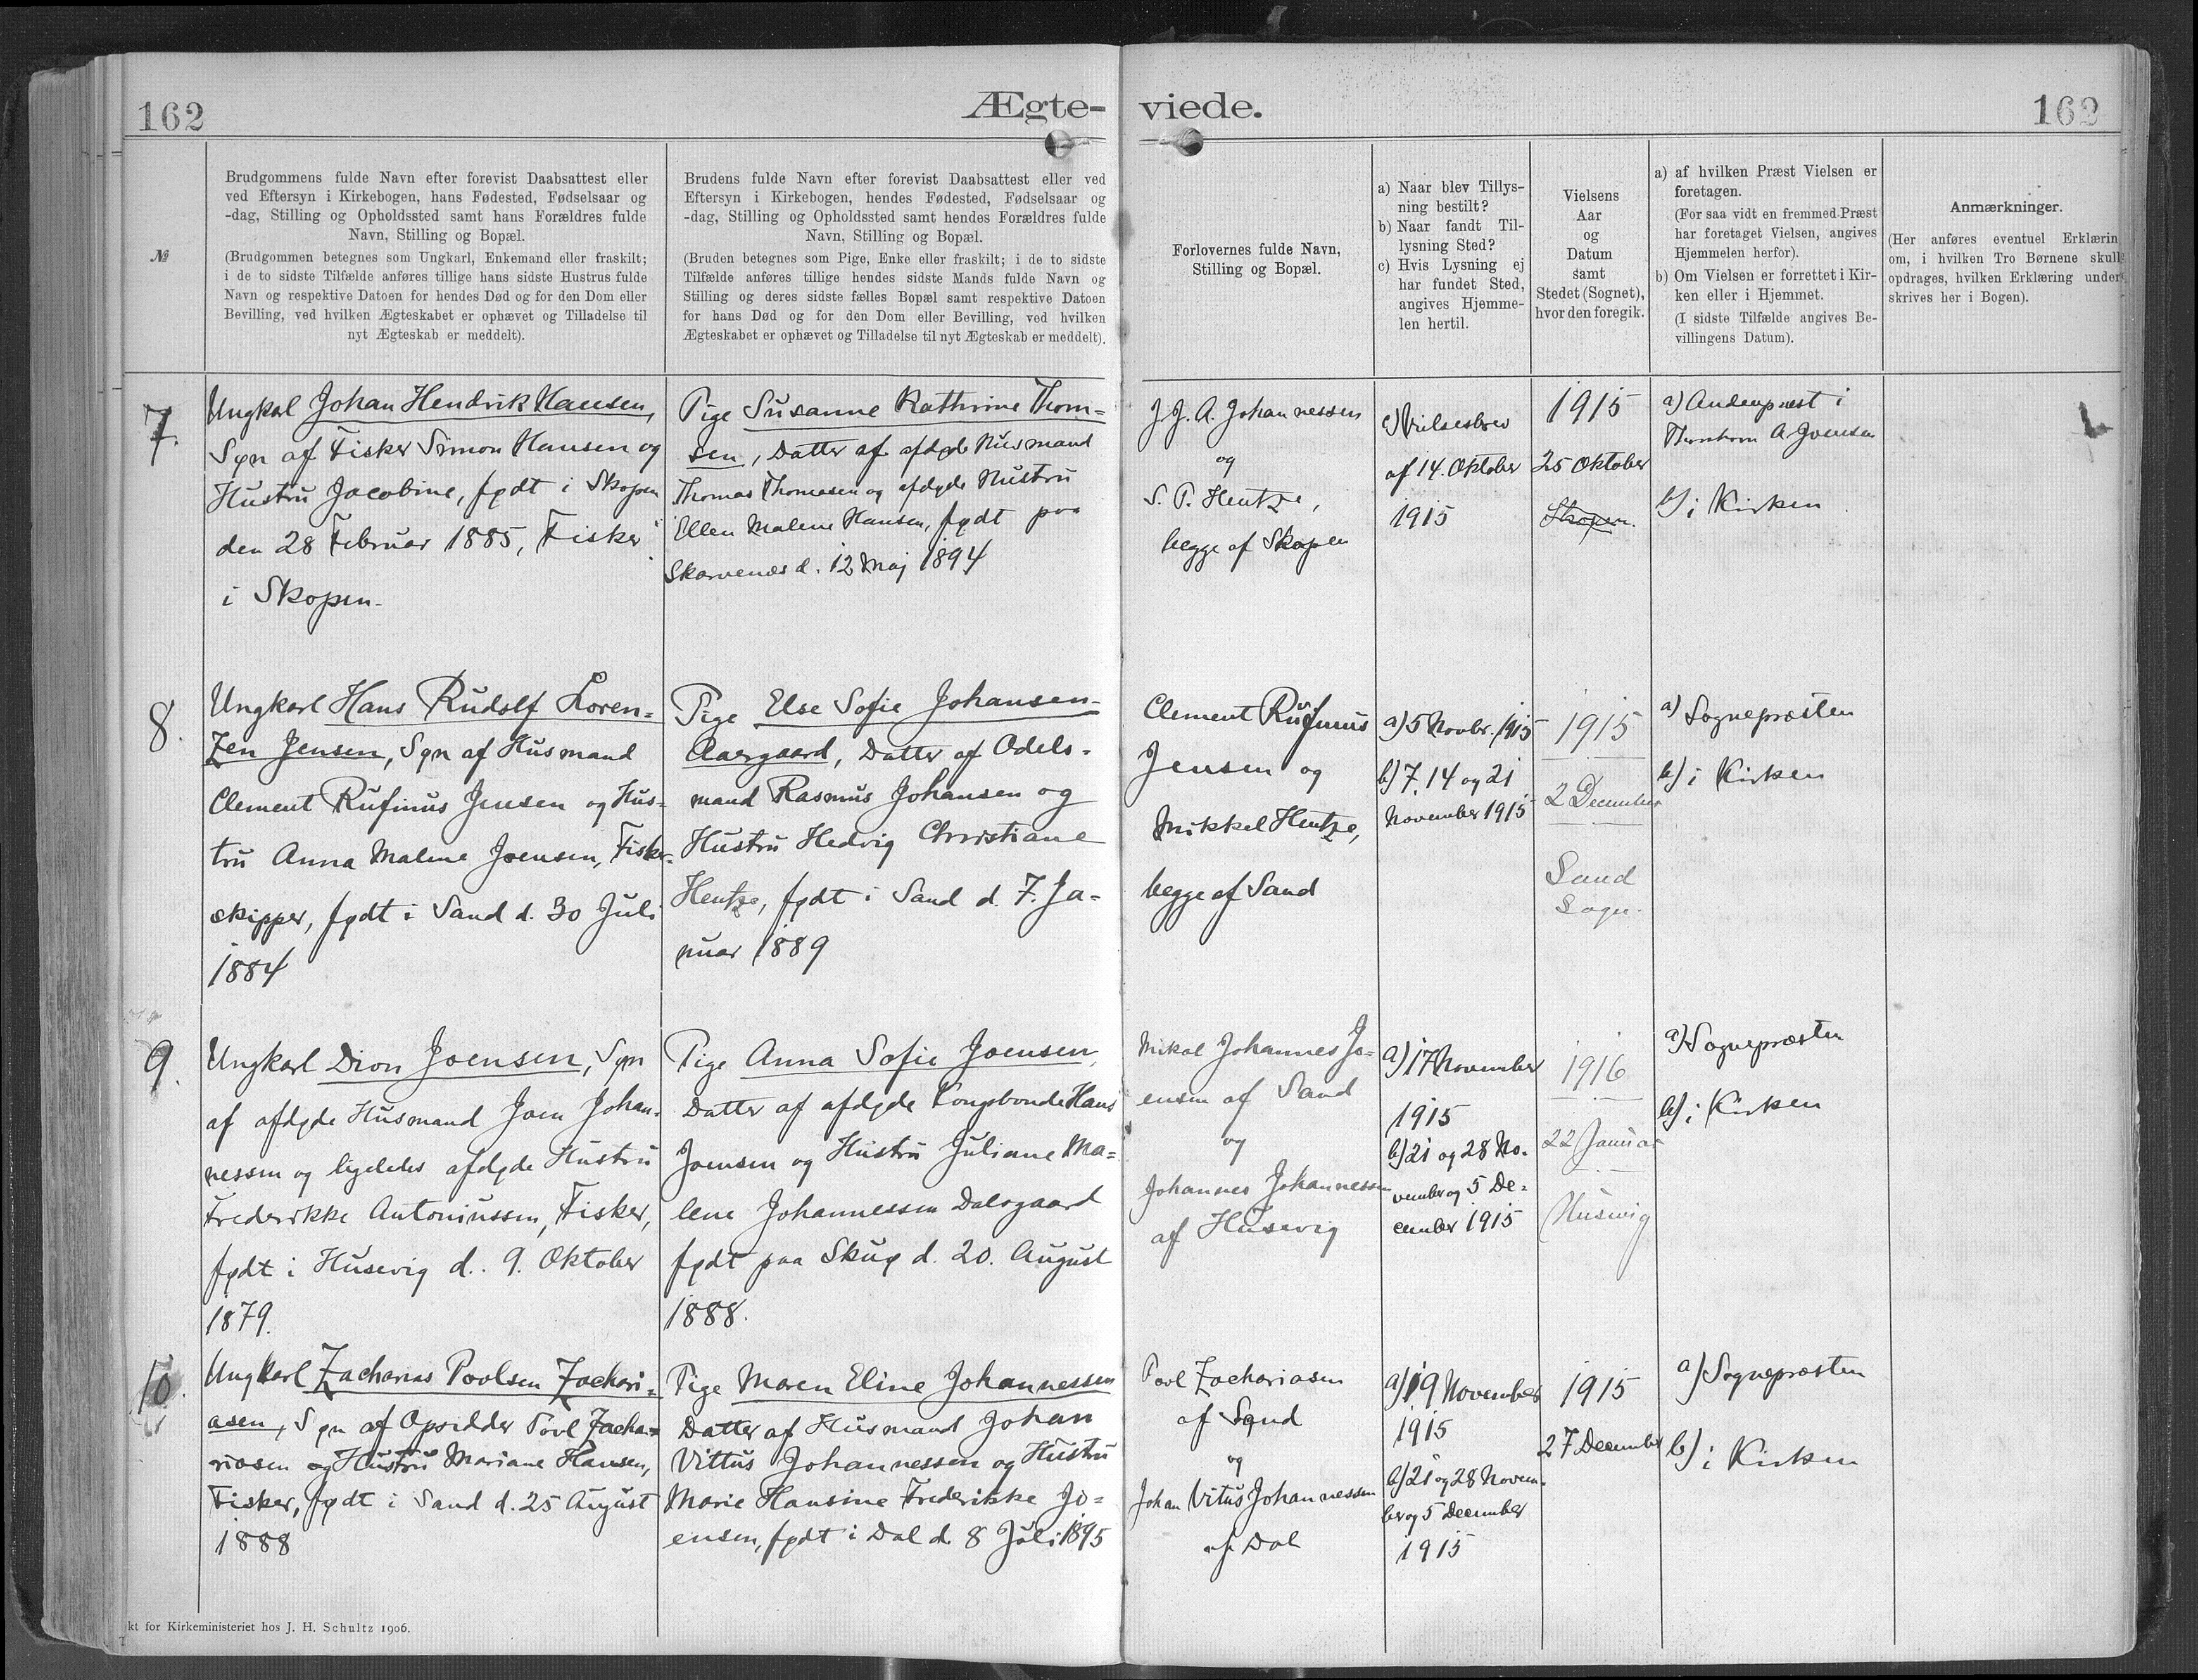 162
Ægte-
viede.
162
№
Brudgommens fulde Navn efter forevist Daabsattest eller
ved Eftersyn i Kirkebogen, hans Fødested, Fødselsaar og
-dag, Stilling og Opholdssted samt hans Forældres fulde
Navn, Stilling og Bopæl.
(Brudgommen betegnes som Ungkarl, Enkemand eller fraskilt;
i de to sidste Tilfælde anføres tillige hans sidste Hustrus fulde
Navn og respektive Datoen for hendes Død og for den Dom eller
Bevilling, ved hvilken Ægteskabet er ophævet og Tilladelse til
nyt Ægteskab er meddelt).
Brudens fulde Navn efter forevist Daabsattest eller ved
Eftersyn i Kirkebogen, hendes Fødested, Fødselsaar og
-dag, Stilling og Opholdssted samt hendes Forældres fulde
Navn, Stilling og Bopæl.
(Bruden betegnes som Pige, Enke eller fraskilt; i de to sidste
Tilfælde anføres tillige hendes sidste Mands fulde Navn og
Stilling og deres sidste fælles Bopæl samt respektive Datoen
for hans Død og for den Dom eller Bevilling, ved hvilken
Ægteskabet er ophævet og Tilladelse til nyt Ægteskab er meddelt).
Forlovernes fulde Navn,
Stilling og Bopæl.
a) Naar blev Tillys-
ning bestilt?
b) Naar fandt Til-
lysning Sted?
c) Hvis Lysning ej
har fundet Sted,
angives Hjemme-
len hertil.
Vielsens
Aar
og
Datum
samt
Stedet (Sognet),
hvor den foregik.
a) af hvilken Præst Vielsen er
foretagen.
(For saa vidt en fremmed Præst
har foretaget Vielsen, angives
Hjemmelen herfor).
b) Om Vielsen er forrettet i Kir-
ken eller i Hjemmet.
(I sidste Tilfælde angives Be-
villingens Datum).
Anmærkninger.
(Her anføres eventuel Erklærin
om, i hvilken Tro Børnene skull
opdrages, hvilken Erklæring under
skrives her i Bogen).
7.
Ungkarl Johan Hendrik Hansen,
Søn af Fisker Simon Hansen og
Hustru Jacobine, født i Skopen
den 28 Februar 1885, Fisker
i Skopen.
Pige Susanne Kathrine Thom=
sen, Datter af afdøde Husmand
Thomas Thomasen og afdøde Hustru
Ellen Malene Hansen, født paa
Skarvenes d. 12 Maj 1894
J. J. A. Johannessen
og
S. P. Hentze,
begge af Skopen
c) Vielsesbrev
af 14. Oktober
1915
1915
25 Oktober
Skopen.
a) Andenpræst i
Thorshavn A Joensen
b) i Kirken
8.
Ungkarl Hans Rudolf Loren=
zen Jensen, Søn af Husmand
Clement Rufinus Jensen og Hus=
tru Anna Malene Joensen, Fisker=
skipper, født i Sand d. 30 Juli
1884
Pige Else Sofie Johansen-
Aargaard, Datter af Odels=
mand Rasmus Johansen og
Hustru Hedvig Christiane
Hentze, født i Sand d. 7. Ja=
nuar 1889
Clement Rufinus
Jensen og
Mikkel Hentze,
begge af Sand
a) 5 Novbr. 1915
b) 7, 14 og 21
November 1915
1915
2 December
Sand
Sogn.
a) Sognepræsten
b) i Kirken
9.
Ungkarl Dion Joensen, Søn
af afdøde Husmand Joen Johan=
nessen og ligeledes afdøde Hustru
Frederikke Antoniussen, Fisker,
født i Husevig d. 9. Oktober
1879.
Pige Anna Sofie Joensen,
Datter af afdøde Kongsbonde Hans
Joensen og Hustru Juliane Ma=
lene Johannessen Dalsgaard
født paa Skuø d. 20. August
1888.
Mikal Johannes Jo=
ensen af Sand
og
Johannes Johannessen
af Husevig
a) 17 November
1915
b) 21 og 28 No=
vember og 5 De=
cember 1915
1916
22 Januar
Husevig
a) Sognepræsten
b) i Kirken
10.
Ungkarl Zacharias Poulsen Zachari=
asen, Søn af Opsidder Povl Zacha=
riasen og Hustru Mariane Hansen,
Fisker, født i Sand d. 25 August
1888
Pige Maren Eline Johannessen
Datter af Husmand Johan
Vittus Johannessen og Hustru
Marie Hansine Frederikke Jo=
ensen, født i Dal d. 8 Juli 1895
Povl Zachariasen
af Sand
og
Johan Vitus Johannessen
af Dal
a) 19 November
1915
b) 21 og 28 Novem=
ber og 5 December
1915
1915
27 December
a) Sognepræsten
b) i Kirken
kt for Kirkeministeriet hos J. H. Schultz 1906.